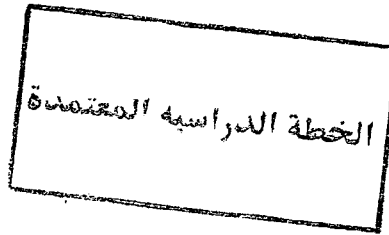 الخطة الدراسيه المعتمدة